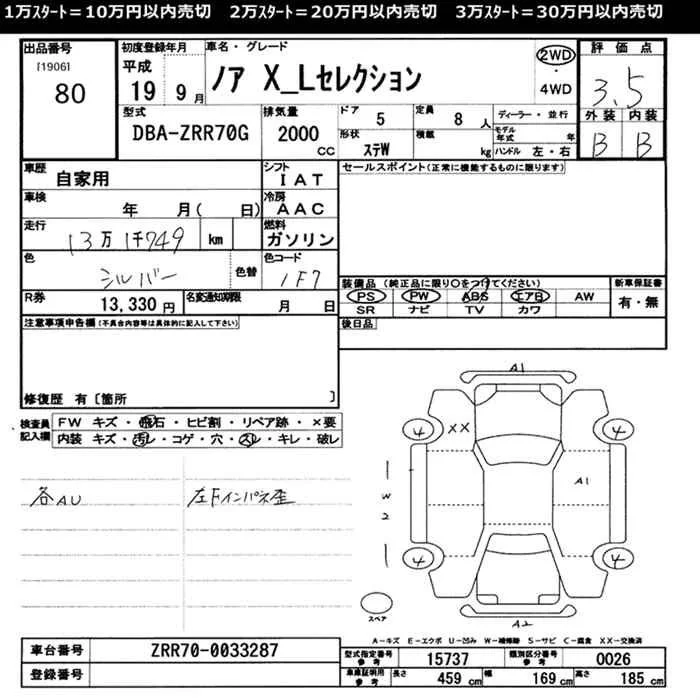 1万ｽﾀｰﾄ＝10万円以内売切　2万ｽﾀｰﾄ＝20万円以内売切　3万ｽﾀｰﾄ＝30万円以内売切
出品番号 初度登録年月 車名・グレード 評価点
[1906] 80
平成 19 9月
ノア X_Lセレクション
2WD ・ 4WD
3.5
型式 DBA-ZRR70G
排気量 2000 CC
ドア 5 定員 8人
形状 ｽﾃW 積載 kg
ディーラー・並行
モデル年式 年
ハンドル 左・右
外装 内装
B B
車歴 自家用
シフト IAT
セールスポイント(正常に機能するものに限ります)
車検 年 月( 日)
冷房 AAC
走行 13万1千749 km
燃料 ガソリン
色 シルバー 色替
色コード 1F7
R券 13,330円
名変通知期限 月 日
装備品 (純正品に限り○をつけてください)
新車保証書
PS PW ABS エアB AW
有・無
SR ナビ TV カワ
後日品
注意事項申告欄(不具合内容等は具体的に記入して下さい)
修復歴 有 [箇所 ]
検査員記入欄
FW キズ・飛石・ヒビ割・リペア跡・×要
内装 キズ・汚レ・コゲ・穴・スレ・キレ・破レ
各AU
左Fインパネ歪
A1
4 XX 4
W2
A1
4 4
スペア
A2
A－キズ E－エクボ U－凹み W－補修跡 S－サビ C－腐食 XX－交換済
車台番号 ZRR70-0033287
登録番号
型式指定番号 参考 15737
類別区分番号 参考 0026
車庫証明用 参考 長さ 459 cm 幅 169 cm 高さ 185 cm